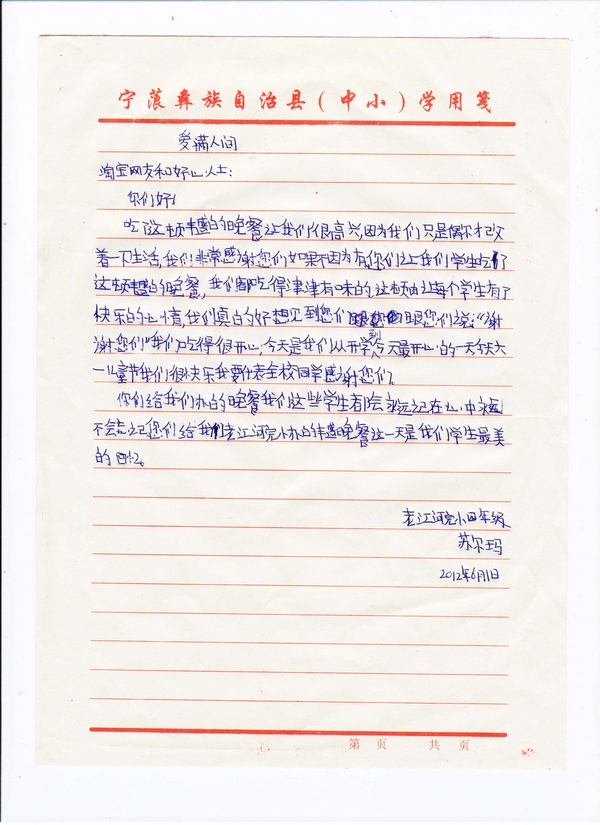 宁蒗彝族自治县(中小)学用笺
爱满人间
淘宝网友和好心人士:
你们好!
吃这顿丰盛的晚餐让我们很高兴,因为我们只是偶尔才改
着一下生活,我们非常感谢您们如果不因为有您们让我们学生吃了
这顿丰盛的晚餐,我们都吃得津津有味的,这顿由让每个学生有了
快乐的心情,我们真的好想见到您们跟您们说:“谢
谢您们”我们吃得很开心,今天是我们从开学到今天最开心的一天今天六
一儿童节我们很快乐我要代表全校同学感谢您们,
你们给我们办的晚餐我们这些学生都会永远记在心中永远
不会忘记您们给我们老江河完小办的丰盛晚餐这一天是我们学生最美
的回忆。
老江河完小四年级
苏尔玛
2012年6月1日
第 页 共 页